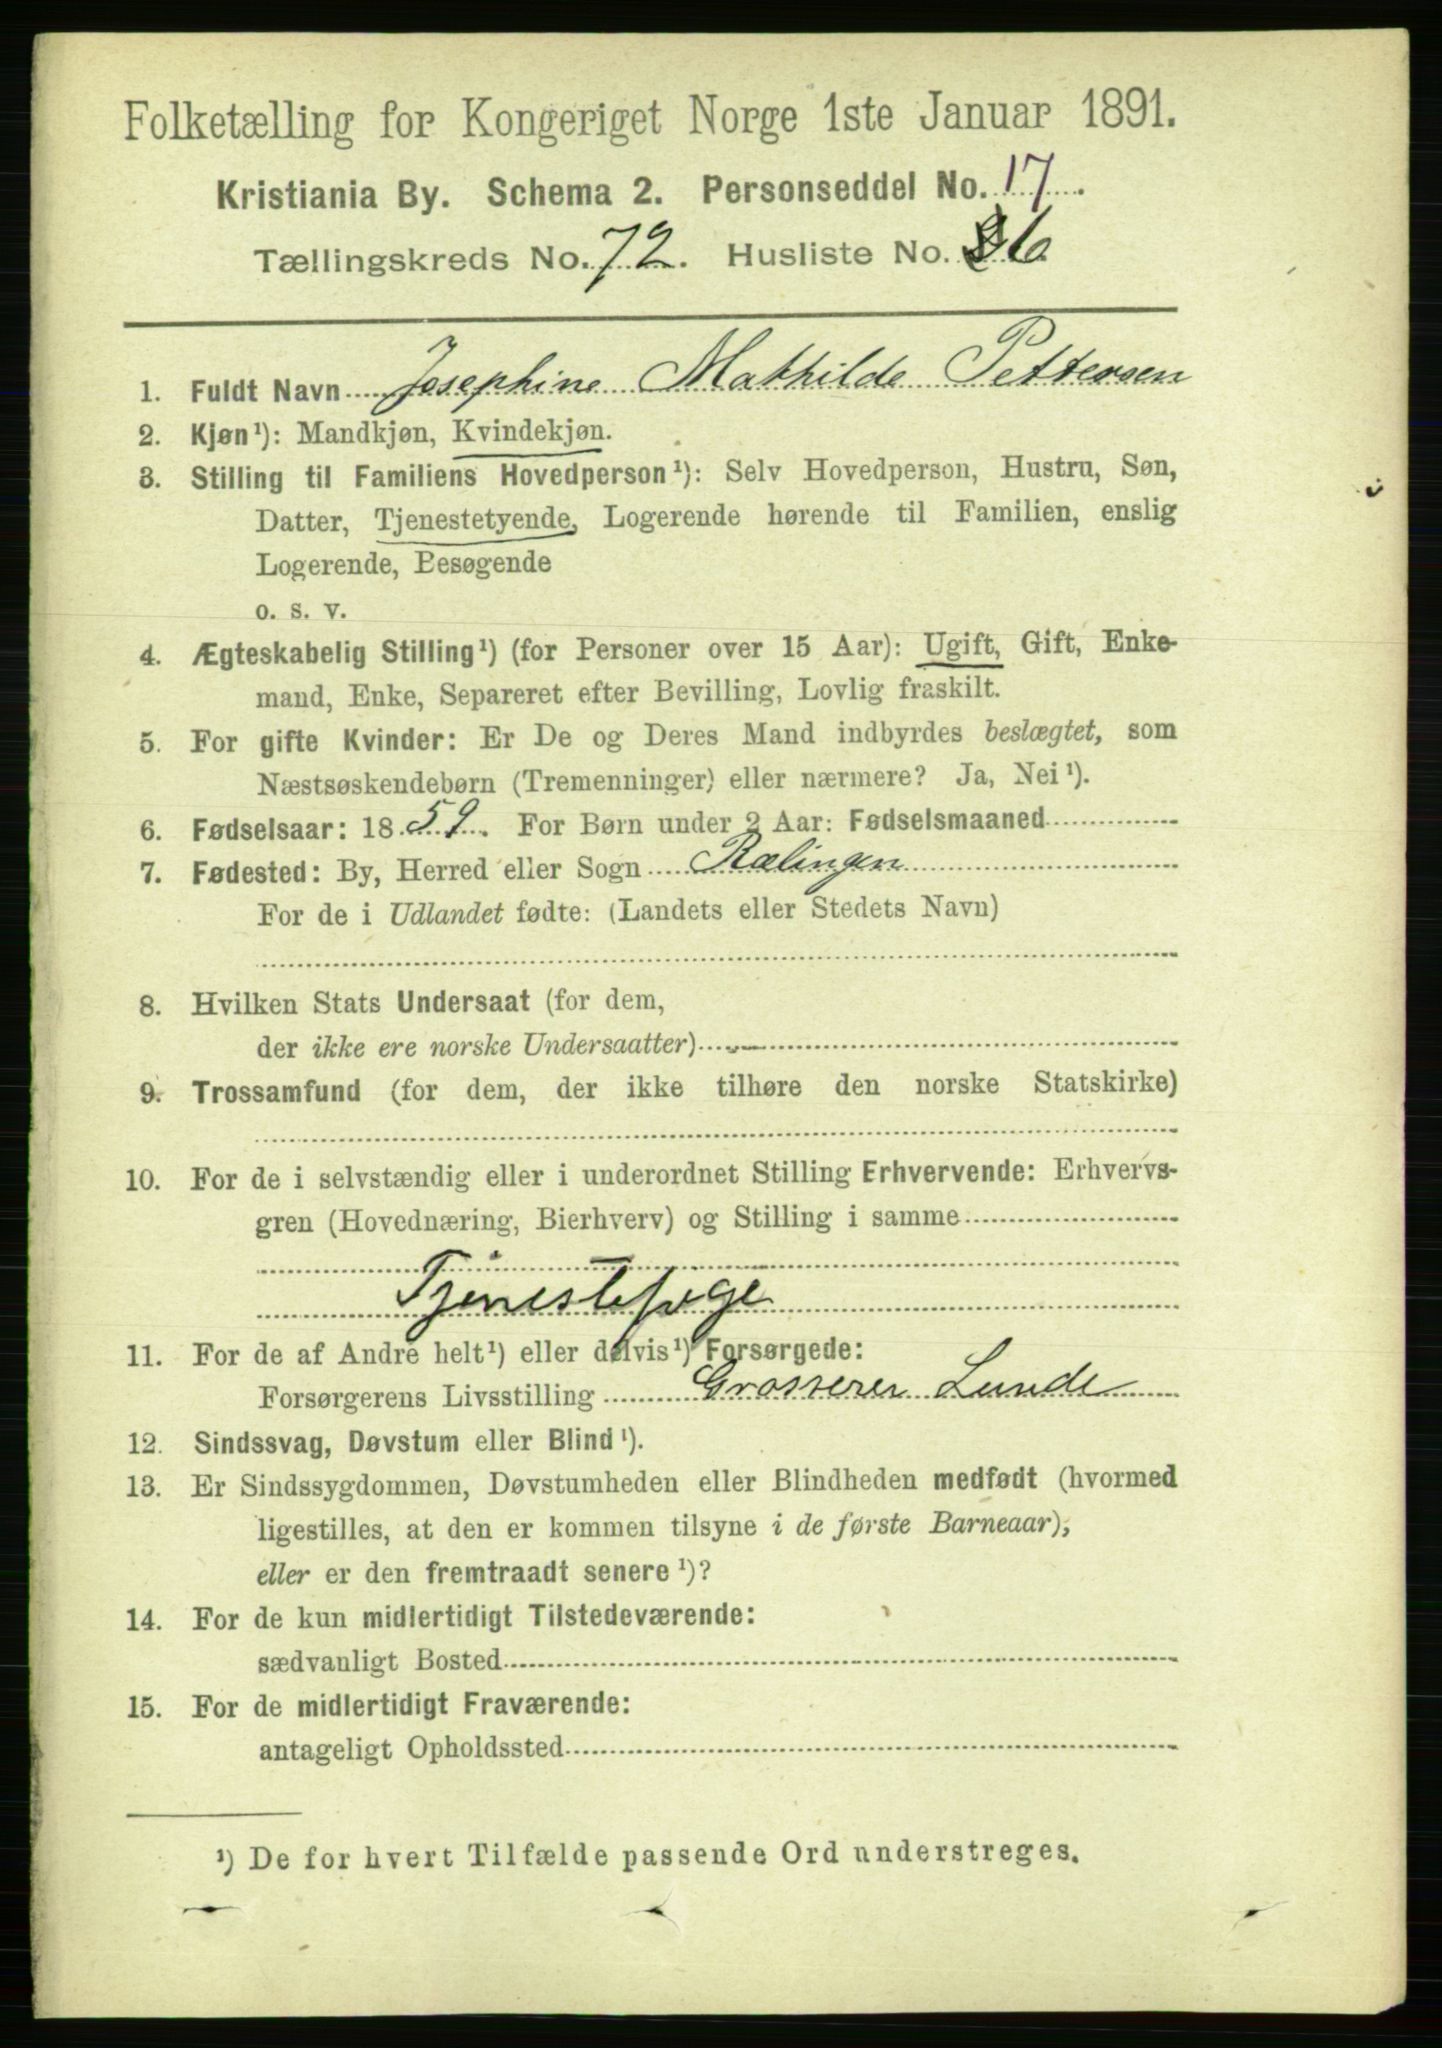 Folketælling for Kongeriget Norge 1ste Januar 1891.
Kristiania By. Schema 2. Personseddel No. 17.
Tællingskreds No. 72. Husliste No. 6
1. Fuldt Navn Josephine Mathilde Pettersen
2. Kjøn¹): Mandkjøn, Kvindekjøn.
3. Stilling til Familiens Hovedperson¹): Selv Hovedperson, Hustru, Søn,
Datter, Tjenestetyende, Logerende hørende til Familien, enslig
Logerende, Besøgende
o. s. v.
4. Ægteskabelig Stilling¹) (for Personer over 15 Aar): Ugift, Gift, Enke-
mand, Enke, Separeret efter Bevilling, Lovlig fraskilt.
5. For gifte Kvinder: Er De og Deres Mand indbyrdes beslægtet, som
Næstsøskendebørn (Tremenninger) eller nærmere? Ja, Nei¹).
6. Fødselsaar: 1859. For Børn under 2 Aar: Fødselsmaaned
7. Fødested: By, Herred eller Sogn Rælingen
For de i Udlandet fødte: (Landets eller Stedets Navn)
8. Hvilken Stats Undersaat (for dem,
der ikke ere norske Undersaatter)
9. Trossamfund (for dem, der ikke tilhøre den norske Statskirke)
10. For de i selvstændig eller i underordnet Stilling Erhvervende: Erhvervs-
gren (Hovednæring, Bierhverv) og Stilling i samme
Tjenestepige
11. For de af Andre helt¹) eller delvis¹) Forsørgede:
Forsørgerens Livsstilling Grosserer Lunde
12. Sindssvag, Døvstum eller Blind¹).
13. Er Sindssygdommen, Døvstumheden eller Blindheden medfødt (hvormed
ligestilles, at den er kommen tilsyne i de første Barneaar),
eller er den fremtraadt senere¹)?
14. For de kun midlertidigt Tilstedeværende:
sædvanligt Bosted
15. For de midlertidigt Fraværende:
antageligt Opholdssted
¹) De for hvert Tilfælde passende Ord understreges.